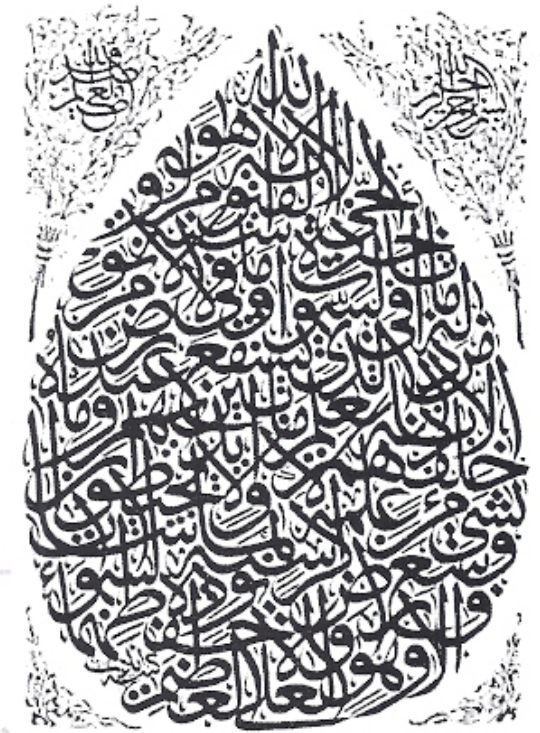 بسم الله الرحمن الرحيم
الله
لا اله الا هو
الحي القيوم
لا تاخذه سنة ولا نوم
له ما في السموات وما في الارض
من ذا الذي يشفع عنده
الا باذنه يعلم ما بين ايديهم وما
خلفهم ولا يحيطون
بشيء من علمه الا بما شاء
وسع كرسيه السموات
والارض ولا يؤده حفظهما
وهو العلي العظيم
صدق الله العظيم